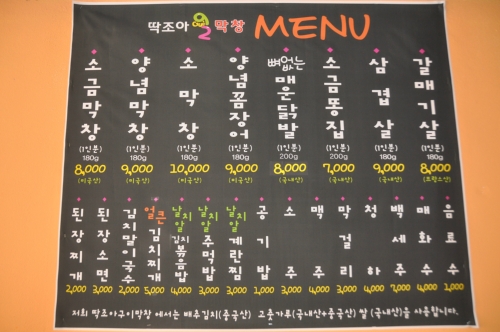 딱조아 막창 MENU
소금막창
(1인분)
180g
8,000
(미국산)
양념막창
(1인분)
180g
9,000
(미국산)
소막창
(1인분)
180g
10,000
(미국산)
양념꼼장어
(1인분)
180g
9,000
(미국산)
뼈없는
매운닭발
(1인분)
200g
8,000
(국내산)
소금똥집
(1인분)
200g
7,000
(국내산)
삼겹살
(1인분)
180g
9,000
(국내산)
갈매기살
(1인분)
180g
8,000
(프랑스산)
된장찌개
2,000
된장소면
3,000
김치말이국수
2,000
얼큰
김치찌개
5,000
날치알
김치볶음밥
4,000
날치알
주먹밥
3,000
날치알
계란찜
2,000
공기밥
1,000
소주
3,000
맥주
3,000
막걸리
3,000
청하
4,000
백세주
7,000
매화수
4,000
음료수
저희 딱조아구이막창 에서는 배추김치(중국산) 고춧가루(국내산+중국산) 쌀 (국내산)을 사용합니다.